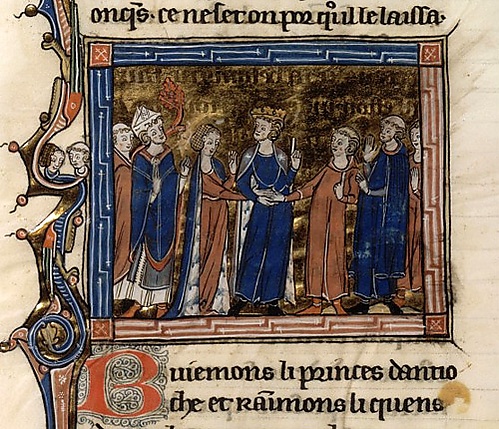 onq̃s. ce ne set on por q̃il le laissa.
Buiemons li princes dantio
che et raimons li quens